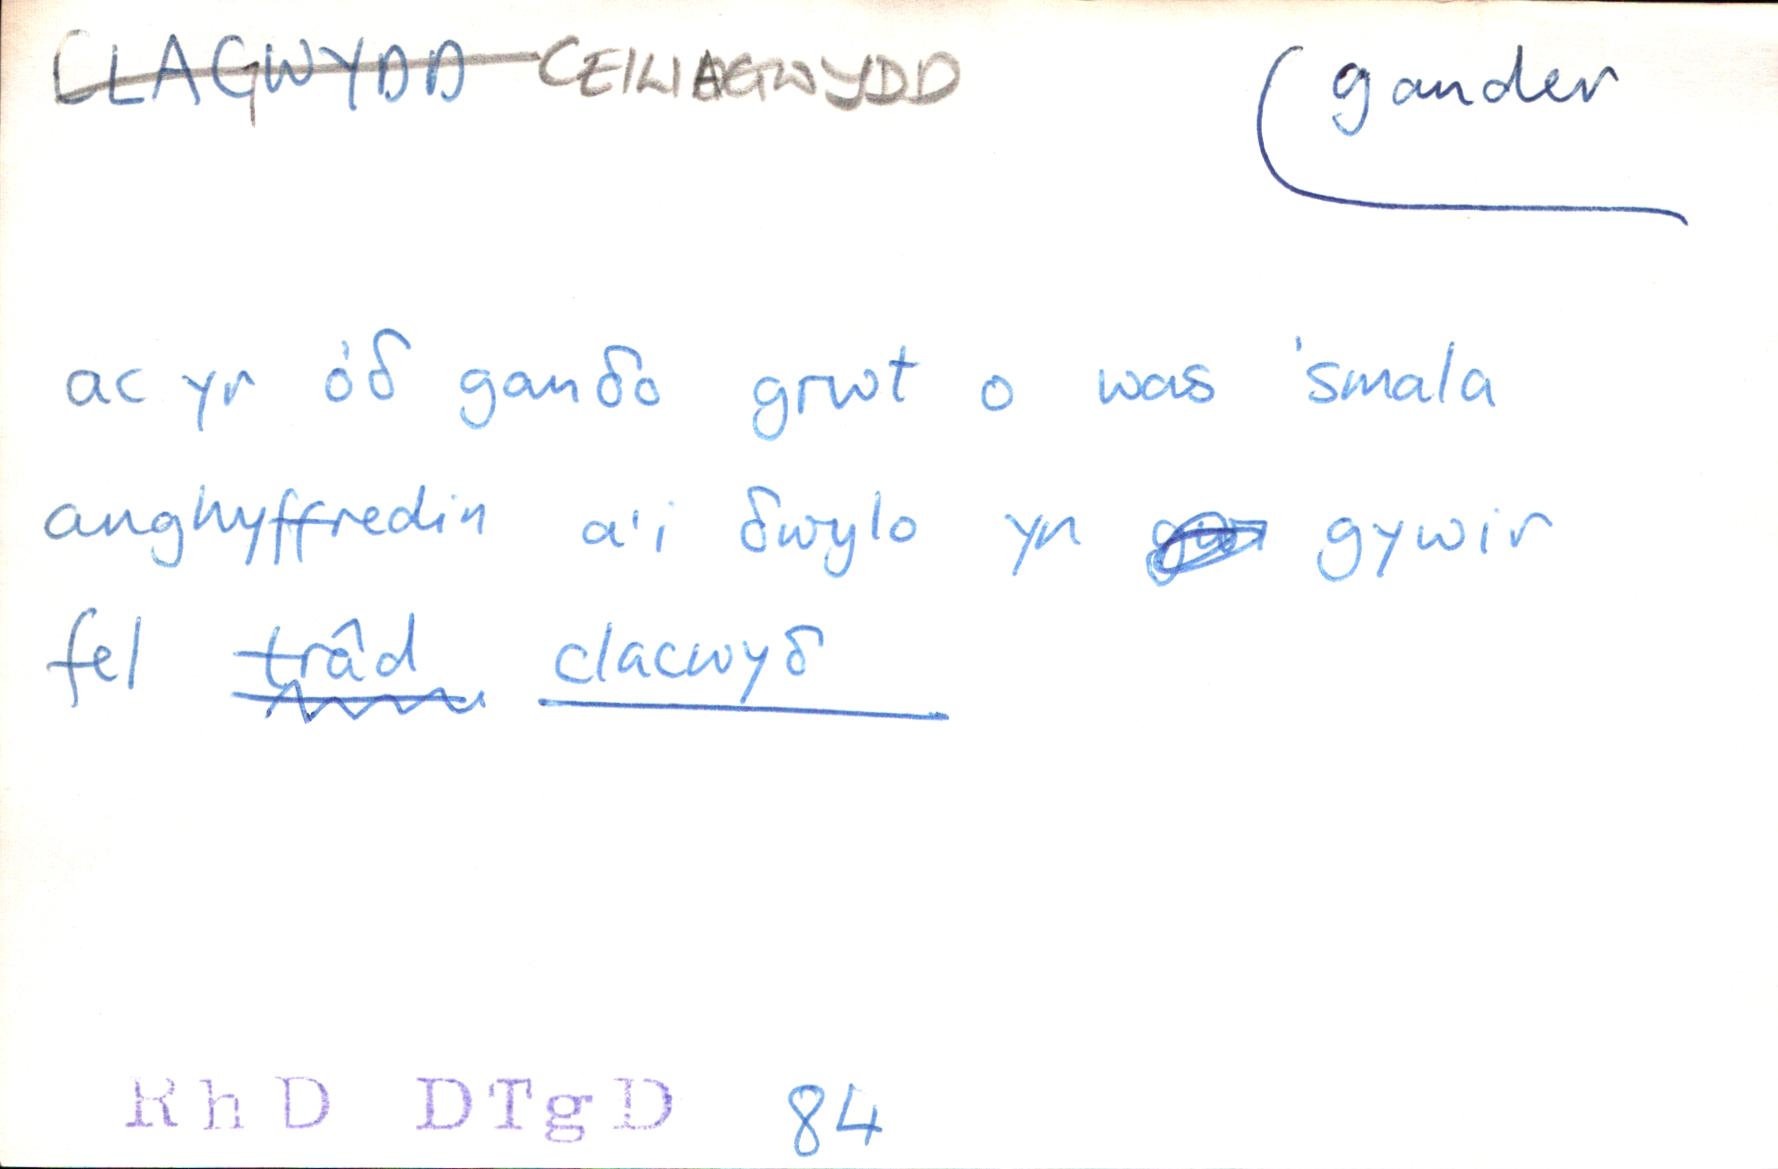 CLAGWYDD CEILIAGWYDD (gander
ac yr óδ ganδo grwt o was 'smala
anghyffredin a'i δwylo yn gywir
fel trâd clacwyδ
RhD DTgD 84